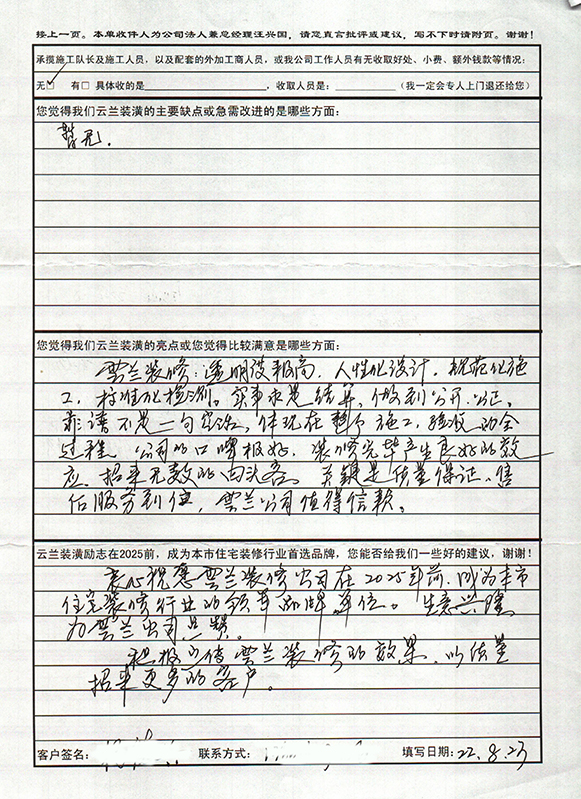 接上一页。本单收件人为公司法人兼总经理汪兴国，请您直言批评或建议，写不下时请附页。谢谢！
承揽施工队长及施工人员，以及配套的外加工商人员，或我公司工作人员有无收取好处、小费、额外钱款等情况：
无☑ 有□ 具体收的是______，收取人员是：______（我一定会专人上门退还给您）
您觉得我们云兰装潢的主要缺点或急需改进的是哪些方面：
暂无.
您觉得我们云兰装潢的亮点或您觉得比较满意是哪些方面：
云兰装修：透明度极高，人性化设计，规范化施
工，标准化检测。实事求是结算，做到公开、公正。
靠谱不是一句空话，体现在整个施工、验收的全
过程 公司的口啤极好，装修完毕产生良好的效
应，招来无数的回头客。关键是质量保证，售
后服务到位，云兰公司值得信赖。
云兰装潢励志在2025前，成为本市住宅装修行业首选品牌，您能否给我们一些好的建议，谢谢！
衷心祝愿云兰装修公司在2025年前，成为本市
住宅装修行业的领军品牌单位。生意兴隆
为云兰公司点赞。
积极宣传云兰装修的效果，以质量
招来更多的客户。
客户签名： 联系方式： 填写日期：22.8.23